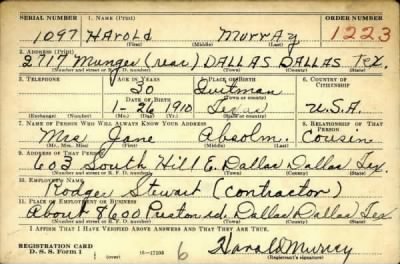 SERIAL NUMBER 1. NAME (Print) ORDER NUMBER
1097 HAROLD MURRAY 1223
(First) (Middle) (Last)
2. ADDRESS (Print)
2717 Munger (rear) DALLAS DALLAS Tex.
(Number and street or R. F. D. number) (Town) (County) (State)
3. TELEPHONE 4. AGE IN YEARS 5. PLACE OF BIRTH 6. COUNTRY OF CITIZENSHIP
30 Quitman
DATE OF BIRTH (Town or county)
1-26 1910 Texas U.S.A.
(Exchange) (Number) (Mo.) (Day) (Yr.) (State or country)
7. NAME OF PERSON WHO WILL ALWAYS KNOW YOUR ADDRESS 8. RELATIONSHIP OF THAT PERSON
Mrs Jane Absolm. Cousin
(Mr., Mrs., Miss) (First) (Middle) (Last)
9. ADDRESS OF THAT PERSON
603 South Hill E. Dallas Dallas Tex.
(Number and street or R. F. D. number) (Town) (County) (State)
10. EMPLOYER'S NAME
Rodger Stewart (contractor)
11. PLACE OF EMPLOYMENT OR BUSINESS
About 8600 Preston rd. Dallas Dallas Tex
(Number and street or R. F. D. number) (Town) (County) (State)
I AFFIRM THAT I HAVE VERIFIED ABOVE ANSWERS AND THAT THEY ARE TRUE.
REGISTRATION CARD
D. S. S. Form 1 16-17105 6 Harald Murray
(Registrant's signature)